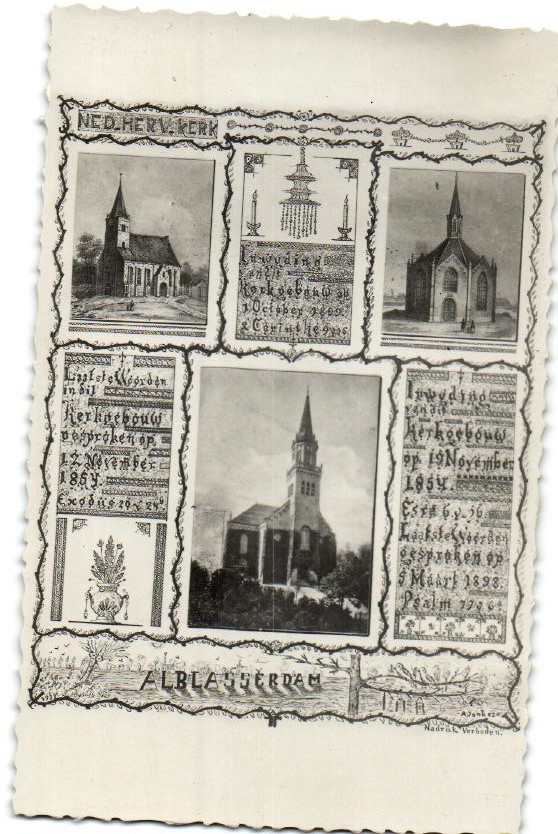 NED. HERV. KERK
Inwyding
van dit
Kerkgebouw op
1 October
Laatste Woorden
in dit
Kerkgebouw
gesproken op
12 November
1854.
Exodus 20 v. 24b
Inwyding
van dit
Kerkgebouw
op 19 November
1854.
Esra 6 v. 16
Laatste Woorden
gesproken op
5 Maart 1898.
Psalm
ALBLASSERDAM
Nadruk Verboden.